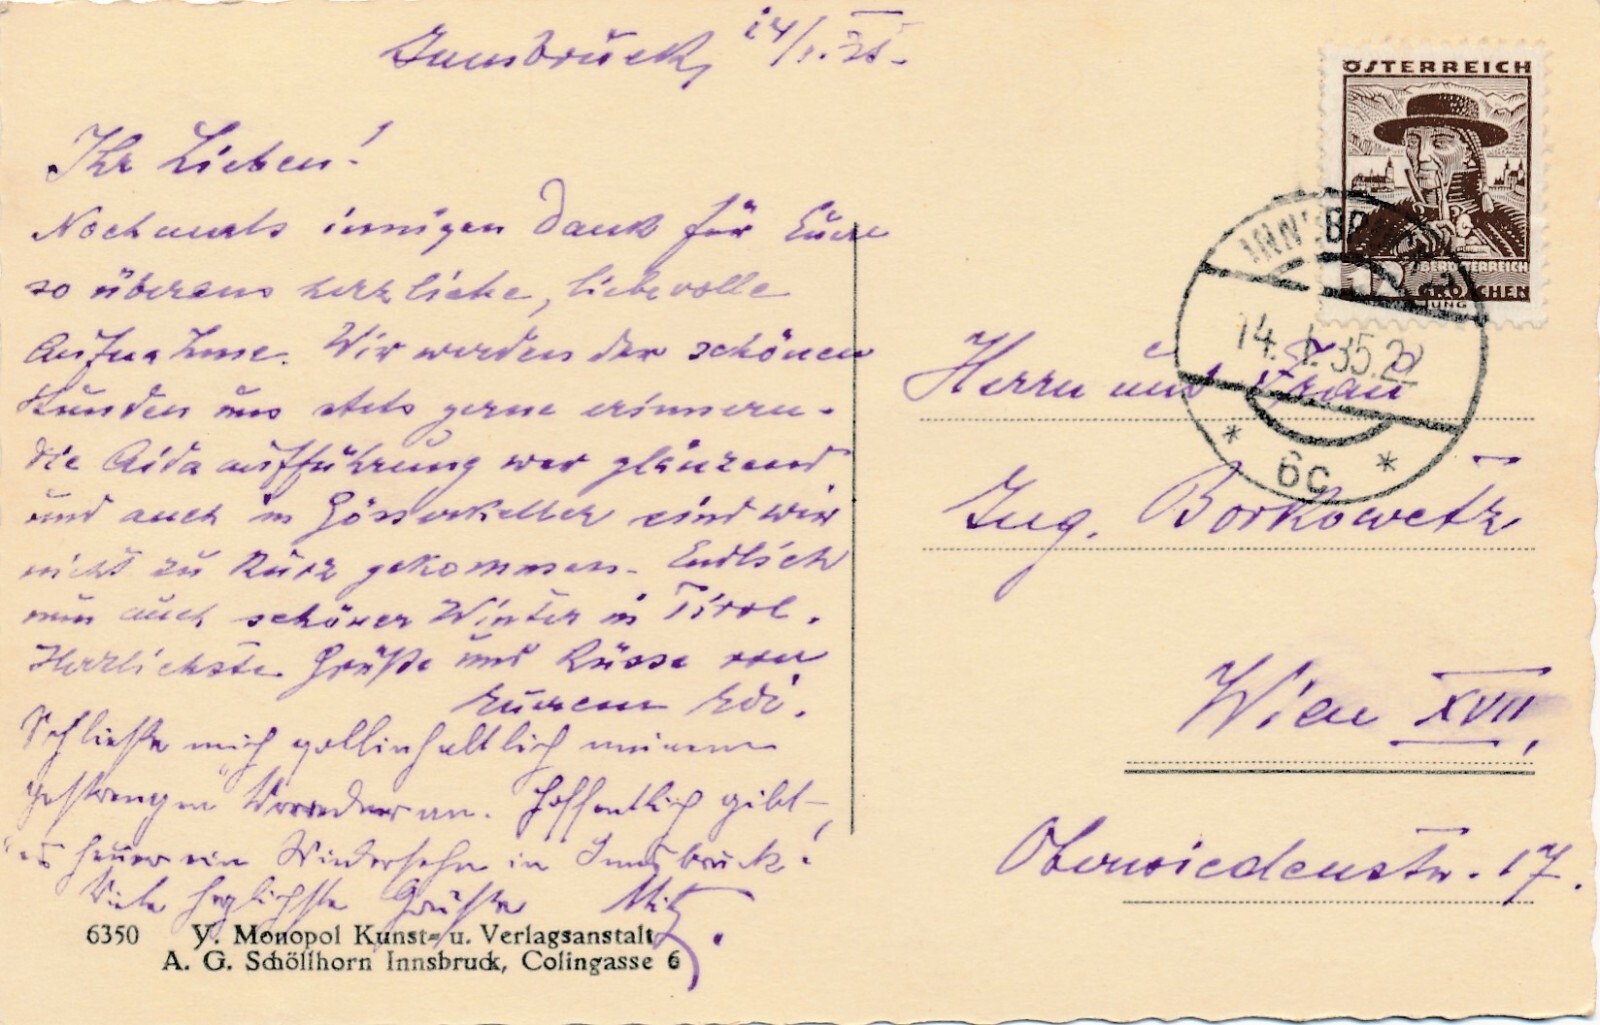 Innsbruck, 14/I. 35.
Ihr Lieben!
Nochmals innigen Dank für Eure
so überaus herzliche, liebevolle
Aufnahme. Wir werden der schönen
Stunden uns stets gerne erinnern.
Die Aidaaufführung war glänzend
und auch im Gösserkeller sind wir
nicht zu kurz gekommen. Endlich
nun auch schöner Winter in Tirol.
Herzlichste Grüße und Küsse von
Eurem Edi.
Schließe mich vollinhaltlich meinem
gestrengen Vorredner an. Hoffentlich gibt
es heuer ein Wiedersehn in Innsbruck!
Viele herzlichste Grüße Mitz.
6350 V. Monopol Kunst- u. Verlagsanstalt
A. G. Schöllhorn Innsbruck, Colingasse 6
ÖSTERREICH
OBERÖSTERREICH
12 GROSCHEN
INNSBRUCK
14. I. 35. 2
* 6c *
Herrn und Frau
Ing. Borkowetz
Wien XVII,
Oberwiedenstr. 17.